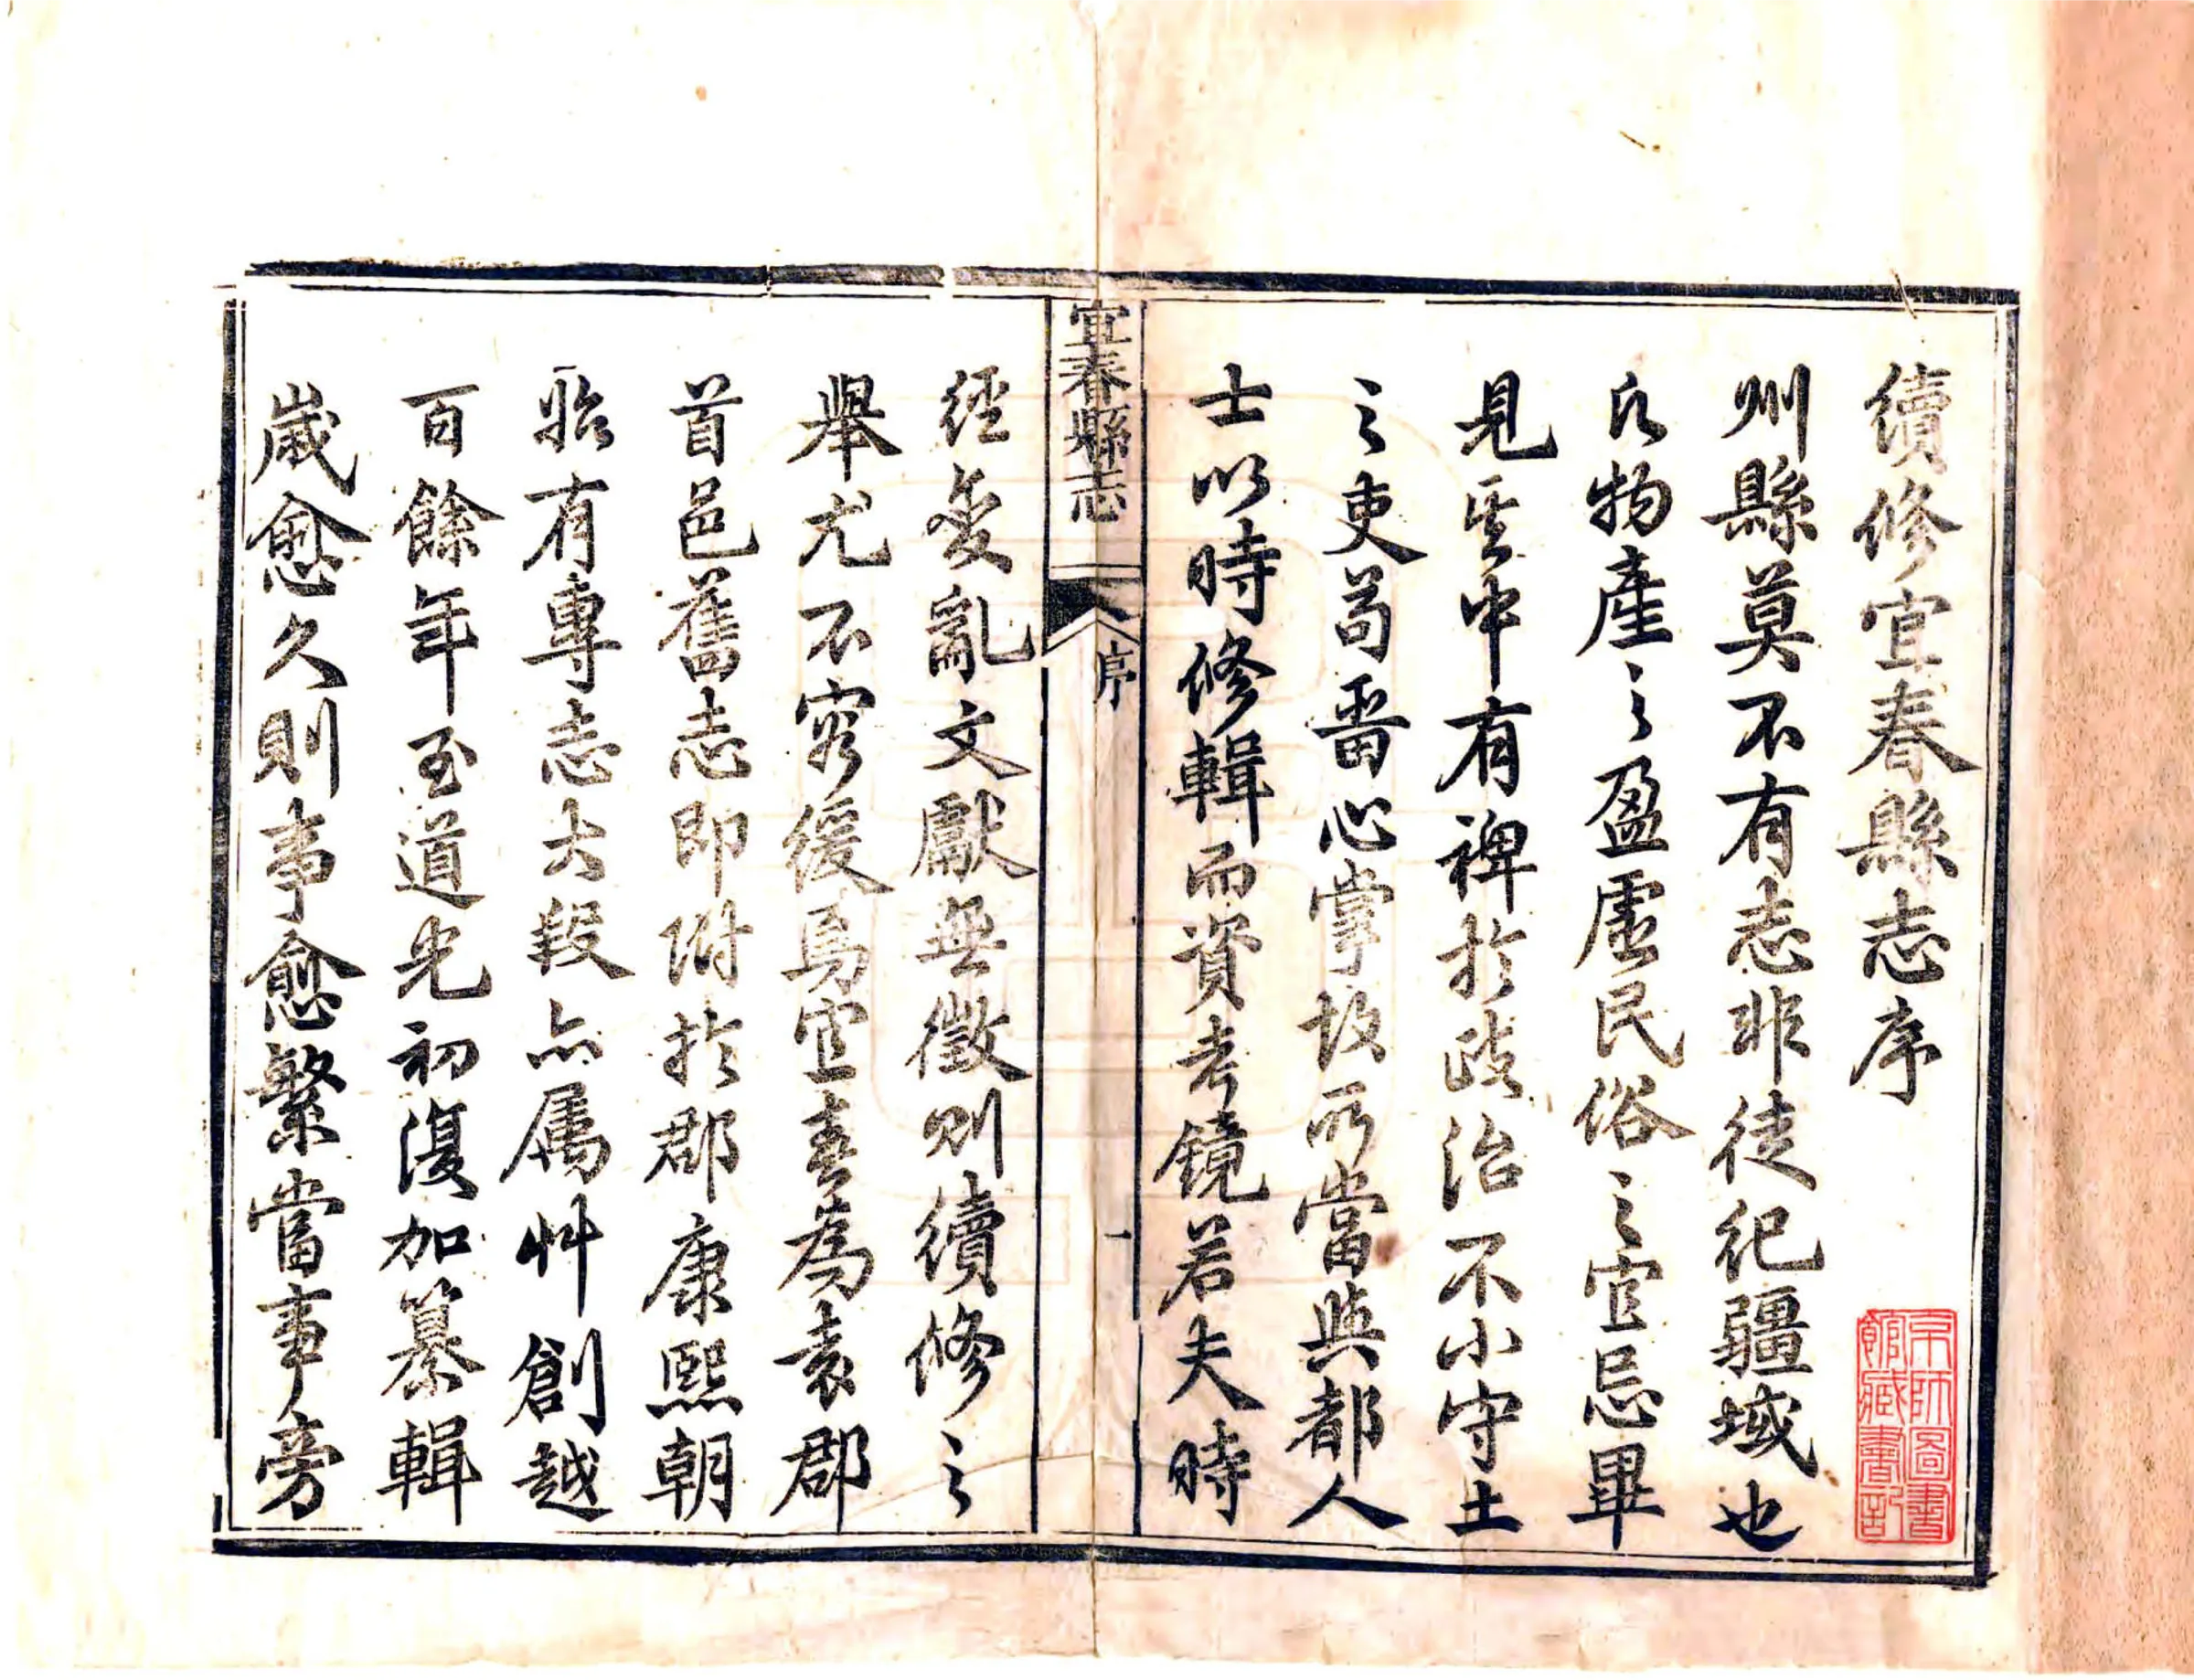 續修宜春縣志序
州縣莫不有志非徒紀疆域也
凡物產之盈虛民俗之宜忌畢
見其中有裨於政治不小守土
之吏苟留心掌故所當與都人
士以時修輯而資考鏡若夫時
宜春縣志
序
一
經變亂文獻無徵則續修之
舉尤不容緩焉宜春為袁郡
首邑舊志即附於郡康熙朝
始有專志大段亦屬艸創越
百餘年至道光初復加纂輯
歲愈久則事愈繁當事旁
京師圖書
館藏書記